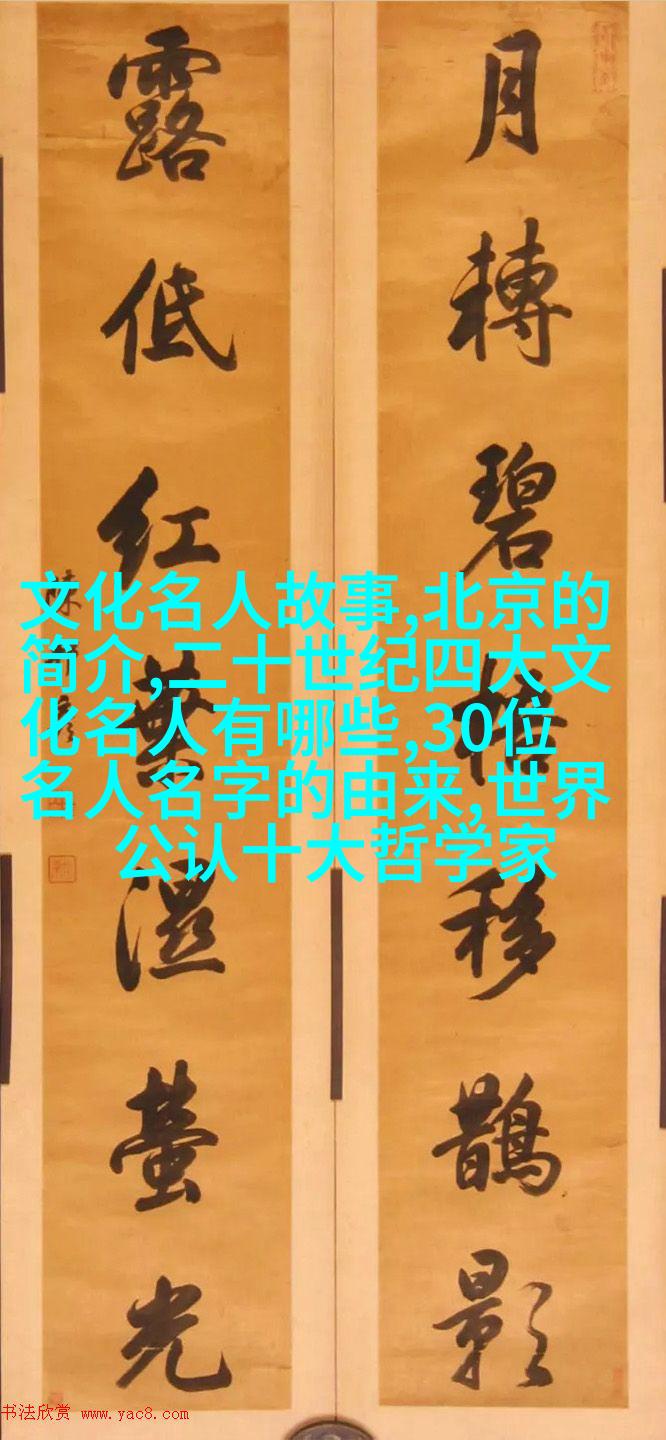 月轉碧梧移鵲影
露低红葉濕螢光
文化名人故事,北京的
简介,二十世纪四大文
化名人有哪些,30位
名人名字的由来,世界
公认十大哲学家
书法欣赏 www.yac8.com